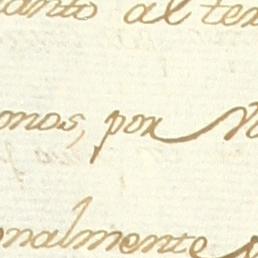 uanto al ter
onos, por N
onalmente